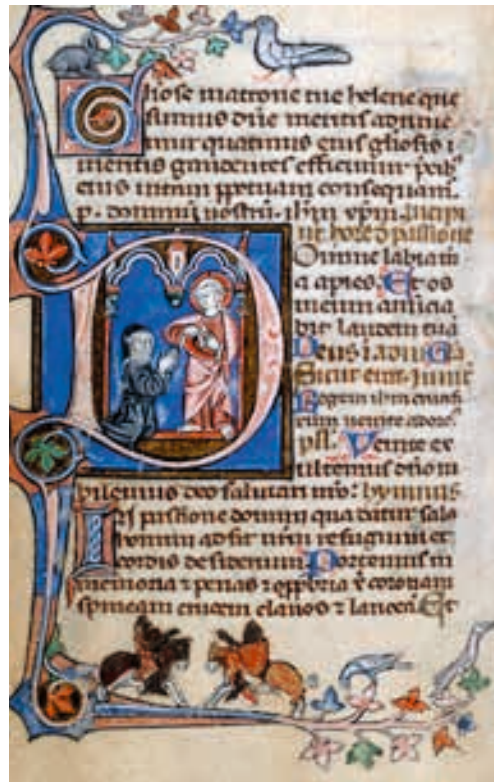 Gliose matrone tue helene que
sumus dñe meritis adiuue
mur quatinus eius gliosis
mentis gaudentes
eius ppetuam consequam.
p. dominũ nostrũ. ihm xpm. Incipi
nt hore d passione
Domine labia m
a apies. Et os
meum annucia
bit laudem tuã
Deus
Sicut erat. Inuit
Regem ihm crucifi
xum uenite adore
ps. Venite ex
ultemus dño iu
bilemus deo salutari nro: hymnus
In passione domini qua datur salu
homini ad sit nrm refugium et
cordis desiderium Portemus in
memoria z penas z coronam
spineam crucem clauos z lanceã. Et